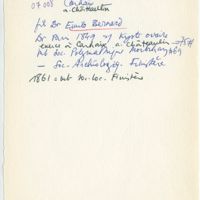 07008 Carhaix
a. Châteaulin
fr Dr Emile Bernard
Dr Paris 1849 kyste ovaire
exerce à Carhaix, a. Châteaulin
Mb Soc. Polymathique Morbihan
— Soc. Archéologiq. Finistère
1861 = mb soc. loc. Finistère